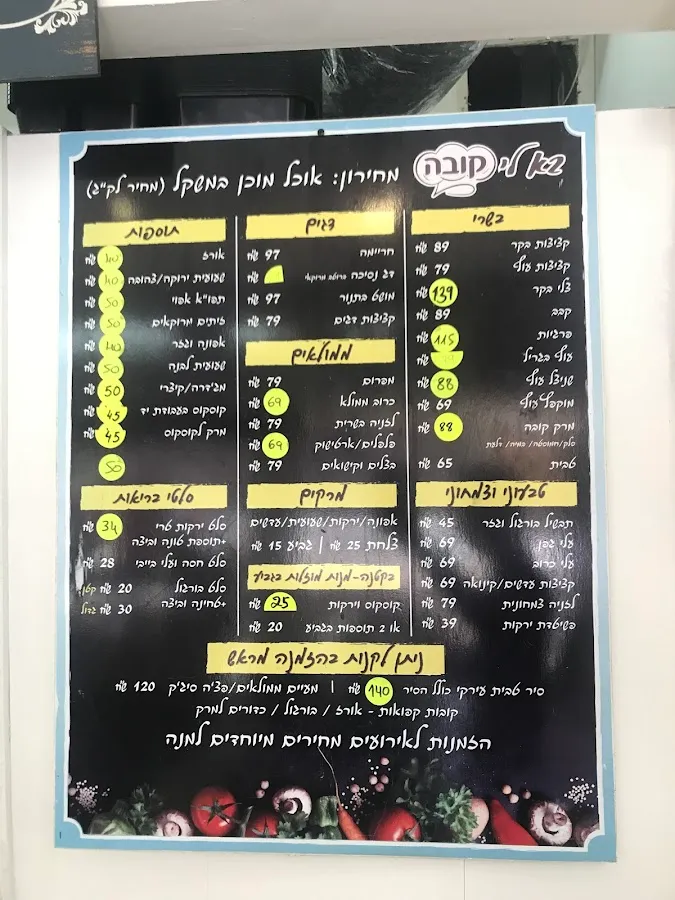 בא לי קובה
מחירון: אוכל מוכן במשקל (מחיר לק״ג)
בשרי
קציצות בקר 89 ש״ח
קציצות עוף 79 ש״ח
צלי בקר 139 ש״ח
קבב 89 ש״ח
פרגיות 115 ש״ח
עוף בגריל ש״ח
שניצל עוף 88 ש״ח
מוקפץ עוף 69 ש״ח
מרק קובה 88 ש״ח
סלק/חמוסטה/במיה/דלעת
טבית 65 ש״ח
טבעוני וצמחוני
תבשיל בורגול וגזר 45 ש״ח
עלי גפן 69 ש״ח
עלי כרוב 69 ש״ח
קציצות עדשים/קינואה 69 ש״ח
לזניה צמחונית 79 ש״ח
פשיטדת ירקות 39 ש״ח
דגים
חריימה 97 ש״ח
דג נסיכה ברוטב מרוקאי ש״ח
מושט בתנור 97 ש״ח
קציצות דגים 79 ש״ח
ממולאים
מפרום 79 ש״ח
כרוב ממולא 69 ש״ח
לזניה בשרית 79 ש״ח
פלפלים/ארטישוק 69 ש״ח
בצלים וקישואים 79 ש״ח
מרקים
אפונה/ירקות/שעועית/עדשים
צלחת 25 ש״ח | גביע 15 ש״ח
בקטנה-מנות מוזלות בגביע
קוסקוס וירקות 25 ש״ח
או 2 תוספות בגביע 20 ש״ח
תוספות
אורז 40 ש״ח
שעועית ירוקה/צהובה 40 ש״ח
תפו״א אפוי 50 ש״ח
זיתים מרוקאים 50 ש״ח
אפונה וגזר 40 ש״ח
שעועית לבנה 50 ש״ח
מג׳דרה/קיצרי 50 ש״ח
קוסקוס בעבודת יד 45 ש״ח
מרק לקוסקוס 45 ש״ח
50
סלטי בריאות
סלט ירקות טרי 34 ש״ח
+תוספת טונה וביצה
סלט חסה ועלי בייבי 28 ש״ח
סלט בורגול 20 ש״ח קטן
+טחינה וביצה 30 ש״ח גדול
ניתן לקנות בהזמנה מראש
סיר טבית עירקי כולל הסיר 140 ש״ח | מעיים ממולאים/פצ׳ה סיג׳ק 120 ש״ח
קובות קפואות - אורז / בורגול / כדורים למרק
הזמנות לאירועים מחירים מיוחדים למנה